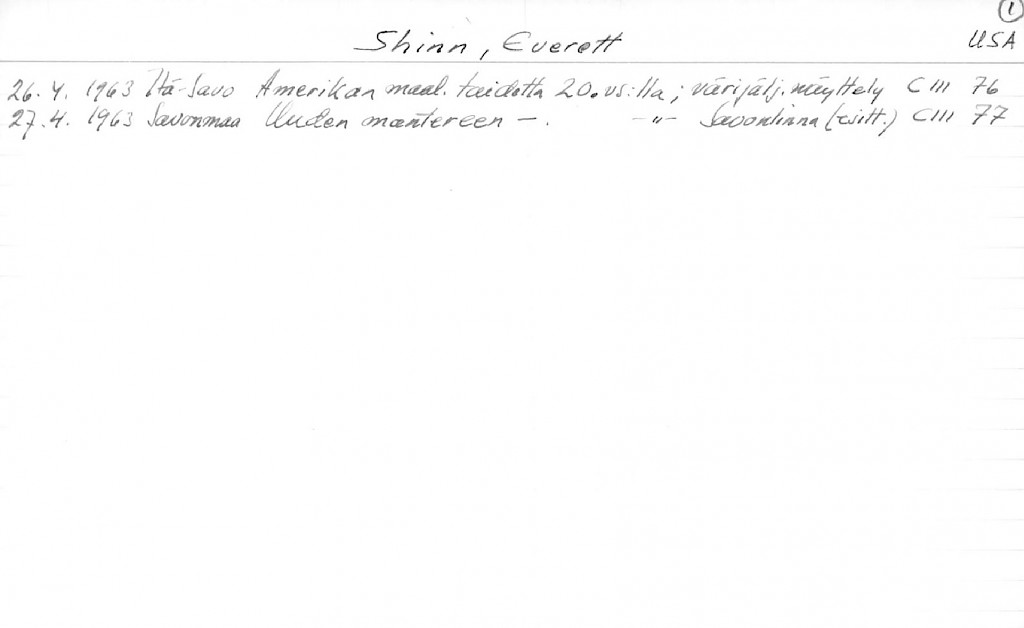 1
Shinn, Everett USA
26.4. 1963 Itä-Savo Amerikan maal. taidetta 20. vs:lla; värijälj. näyttely C III 76
27.4. 1963 Savonmaa Uuden mantereen —. —"— Savonlinna (esitt.) C III 77